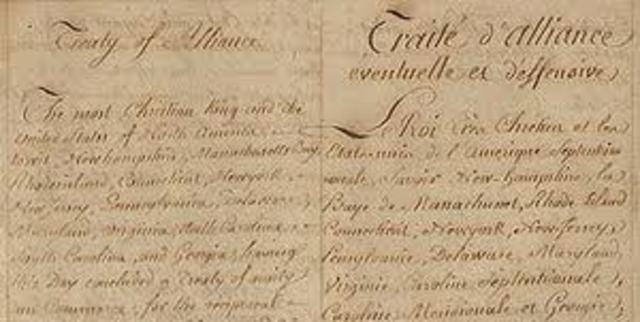 Treaty of Alliance
The most Christian King and the
United States of North America,
to wit, Newhampshire, Massachusetts Bay,
Rhodeisland, Connecticut, Newyork,
New Jersey, Pennsylvania, Delaware,
Maryland, Virginia, North Carolina,
South Carolina, and Georgia, having
this Day concluded a Treaty of amity
and Commerce, for the reciprocal
Traité d'alliance
éventuelle et déffensive
Le Roi très Chretien et les
Etats-unis de l'amerique septentrio
nale, Savoir New-hampshire, la
Baye de Massachuset, Rhode Island
Connecticut, Newyork, New-Jersey,
Pensylvanie, Delaware, Maryland,
Virginie, Caroline Septentrionale,
Caroline Meridionale et Georgie,